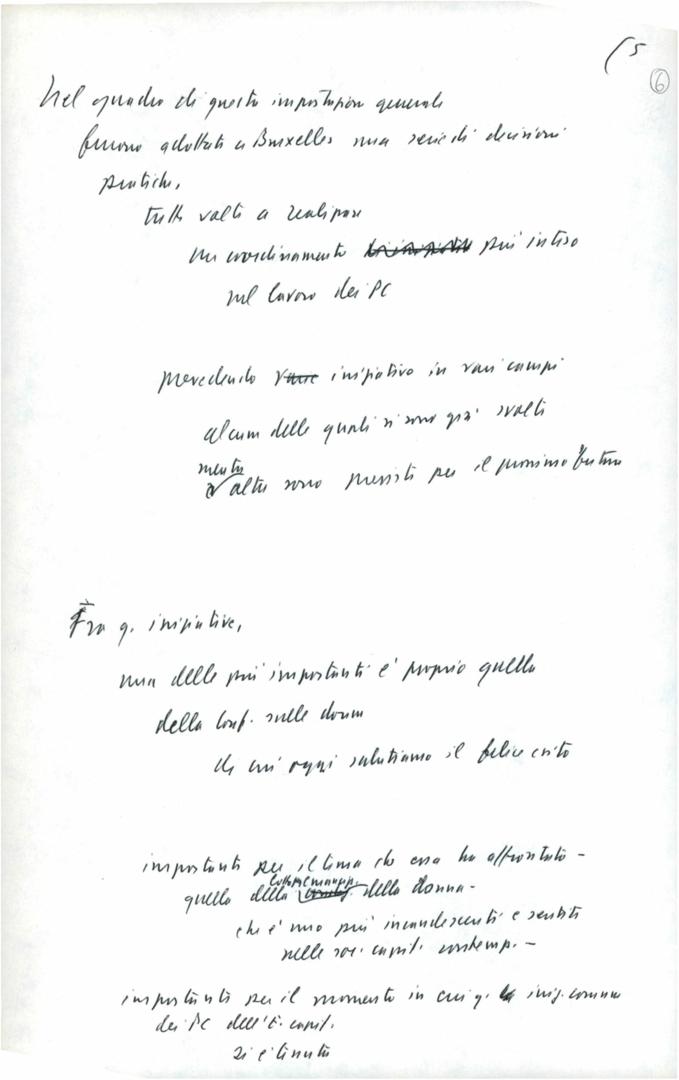 (5
6
Nel quadro di questa impostazione generale
furono adottati a Bruxelles una serie di decisioni
pratiche,
tutte volte a realizzare
un coordinamento più intenso
nel lavoro dei PC
prevedendo varie iniziative in vari campi
alcune delle quali si sono già svolte
mentre
altre sono previste per il prossimo futuro
Fra q. iniziative,
una delle più importanti è proprio quella
della Conf. sulle donne
di cui oggi salutiamo il felice esito
importante per il tema che essa ha affrontato –
quello della lotta x l'emancip. della donna –
che è uno più incandescenti e sentiti
nelle soc. capit. contemp. –
importante per il momento in cui q. iniz. comune
dei PC dell'E. capit.
si è tenuta